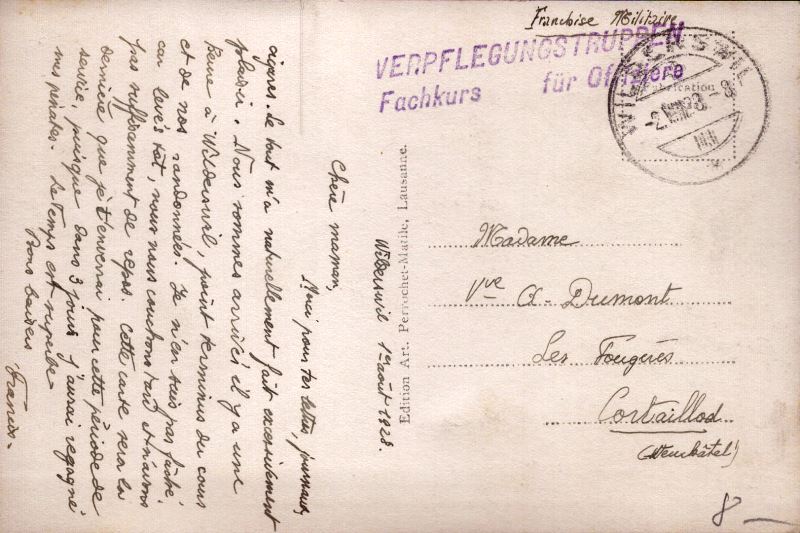 Franchise Militaire
VERPFLEGUNGSTRUPPEN
Fachkurs für Offiziere
WILDERSWIL
Fabrication
-2.VIII.28
Wilderswil 1er août 1928.
Chère maman,
Merci pour tes lettres, journaux,
cigares. Le tout m'a naturellement fait excessivement
plaisir. Nous sommes arrivés il y a une
heure à Wilderswil, point terminus du cours
et de nos randonnées. Je n'en suis pas fâché,
car levés tôt, nous nous couchons tard et n'avons
pas suffisamment de repos. Cette carte sera la
dernière que je t'enverrai pour cette période de
service, puisque dans 3 jours j'aurai regagné
mes pénates. Le temps est superbe.
Bons baisers
Francis.
Edition Art. Perrochet-Matile, Lausanne.
Madame
Vve A. Dumont
Les Fougères
Cortaillod
(Neuchâtel)
8 —